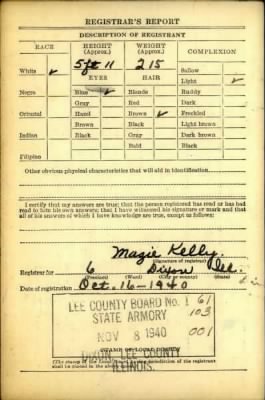 REGISTRAR'S REPORT
DESCRIPTION OF REGISTRANT
RACE HEIGHT (Approx.) WEIGHT (Approx.) COMPLEXION
White ✓ 5 ft 11 215 Sallow
EYES HAIR Light ✓
Negro Blue ✓ Blonde Ruddy
Gray Red Dark
Oriental Hazel Brown ✓ Freckled
Brown Black Light brown
Indian Black Gray Dark brown
Bald Black
Filipino
Other obvious physical characteristics that will aid in identification
I certify that my answers are true; that the person registered has read or has had read to him his own answers; that I have witnessed his signature or mark and that all of his answers of which I have knowledge are true, except as follows:
Mazie Kelly.
(Signature of registrar)
Registrar for 6 Dixon Ill.
(Precinct) (Ward) (City or county) (State)
Date of registration Oct. 16-1940
LEE COUNTY BOARD No. 1 61
STATE ARMORY 103
NOV 8 1940 001
(STAMP OF LOCAL BOARD)
DIXON, LEE COUNTY
ILLINOIS.
(The stamp of the Local Board of the registrant shall be placed in the above